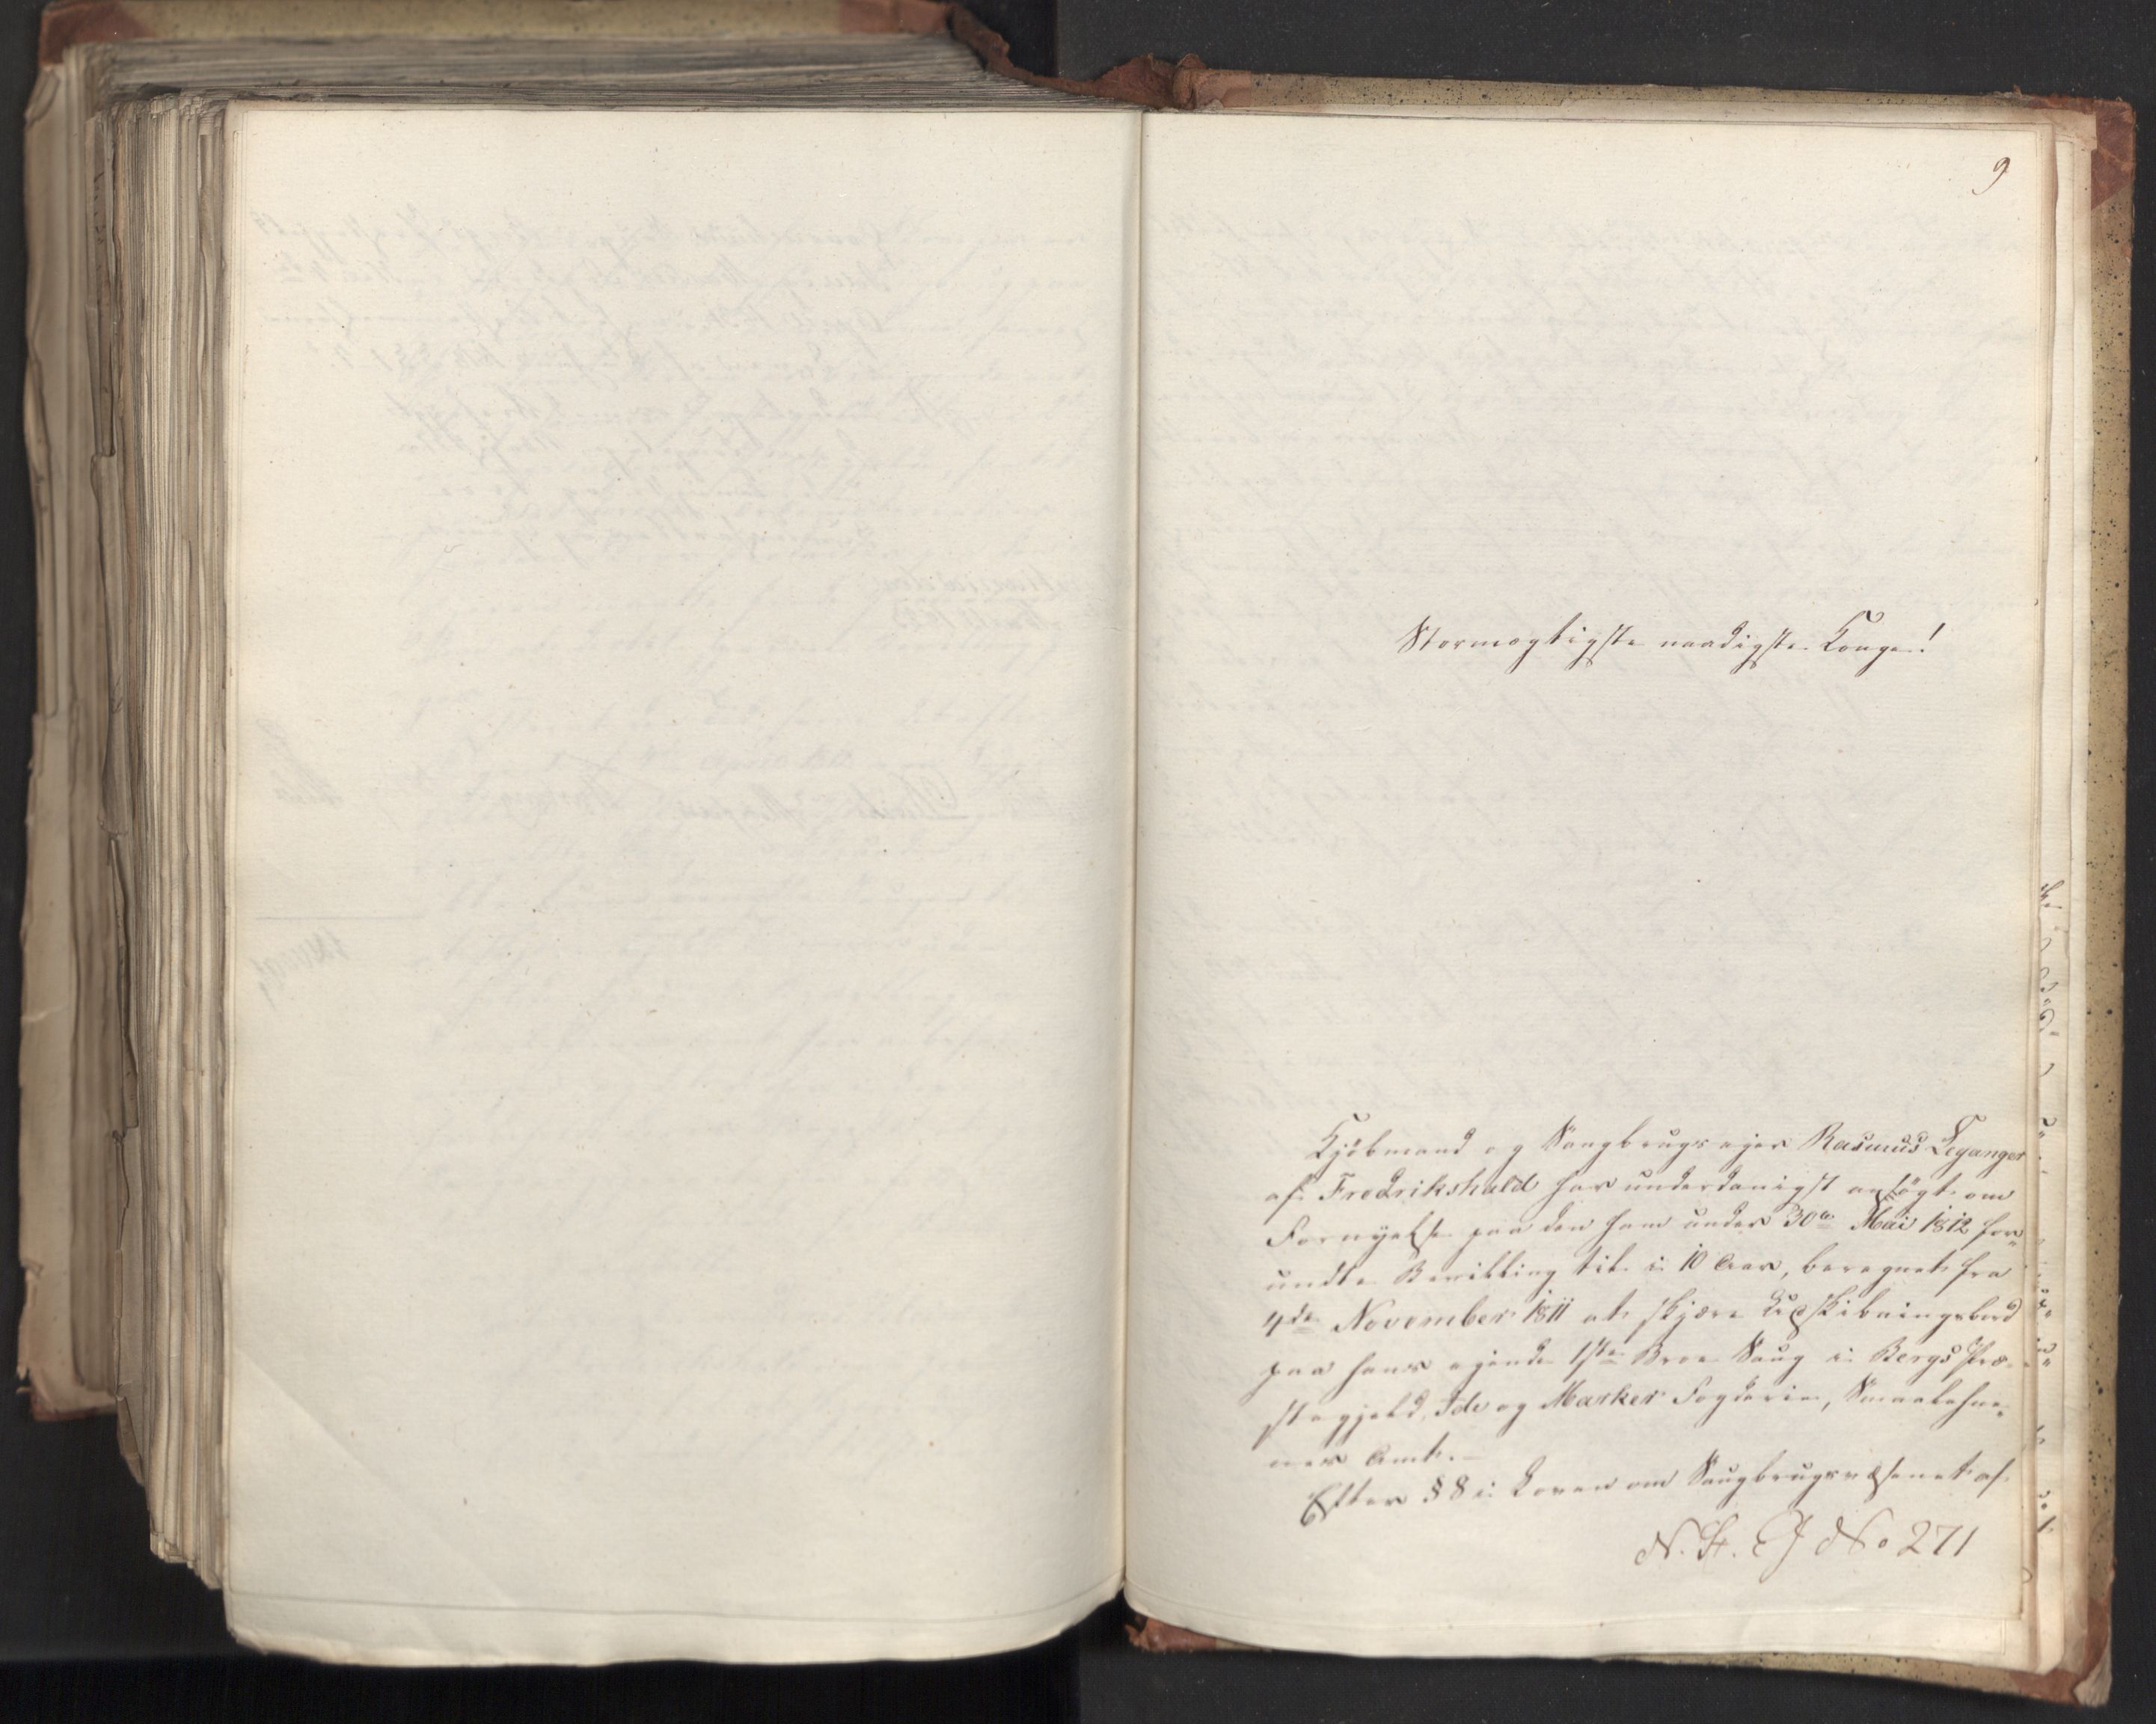 9
Stormægtigste naadigste Konge!
Kjöbmand og Saugbrugs ejer Rasmus Leganger
af Fredrikshald har underdanigst ansögt om
Fornyelse paa den ham under 30te Mai 1812 for„
undte Bevilling til i 10 Aar, beregnet fra
4de November 1811 at skjære Udskibningsbord
paa hans ejende 1ste Broe Saug i Bergs Præ„
stegjeld, Ide og Marker Fogderie, Smaalehne„
nes Amt.–
Efter § 8 i Loven om Saugbrugsvæsenet af
N. St. J No 271